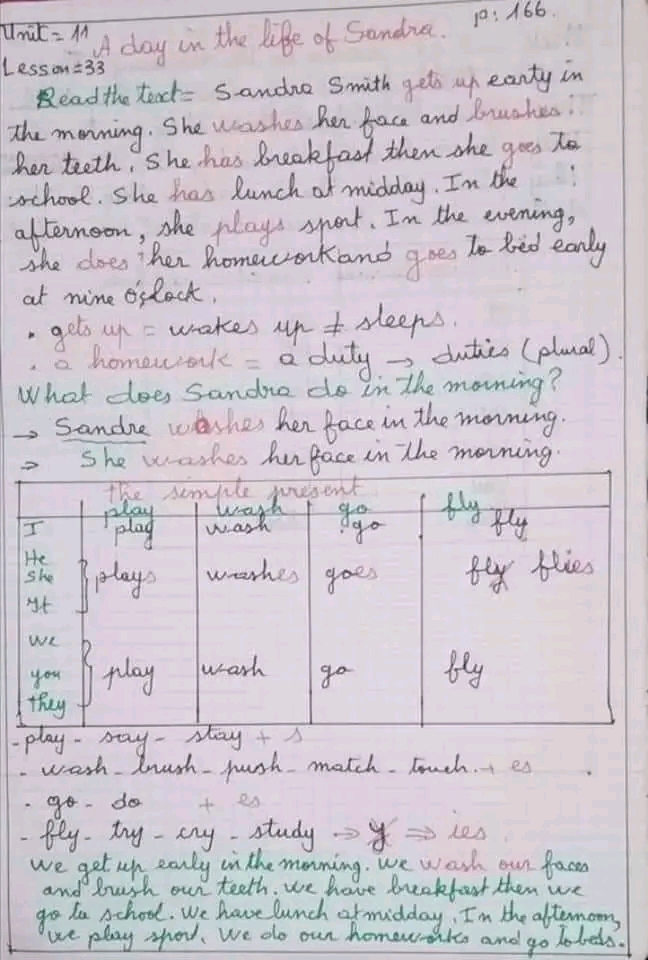 Unit = 11
p: 166.
A day in the life of Sandra.
Lesson=33
Read the text= Sandra Smith gets up early in
the morning. She washes her face and brushes
her teeth. She has breakfast then she goes to
school. She has lunch at midday. In the
afternoon, she plays sport. In the evening,
she does her homework and goes to bed early
at nine o'clock.
• gets up = wakes up ≠ sleeps.
• a homework = a duty → duties (plural).
What does Sandra do in the morning?
→ Sandre washes her face in the morning.
⇒ She washes her face in the morning.
the simple present
play wash go fly
I play wash go fly
He
She plays washes goes fly flies
It
We
you play wash go fly
they
- play - say - stay + s
- wash - brush - push - match - touch + es
- go - do + es
- fly - try - cry - study ⇒ y ⇒ ies
We get up early in the morning. We wash our faces
and brush our teeth. We have breakfast then we
go to school. We have lunch at midday. In the afternoon,
we play sport. We do our homeworks and go to beds.